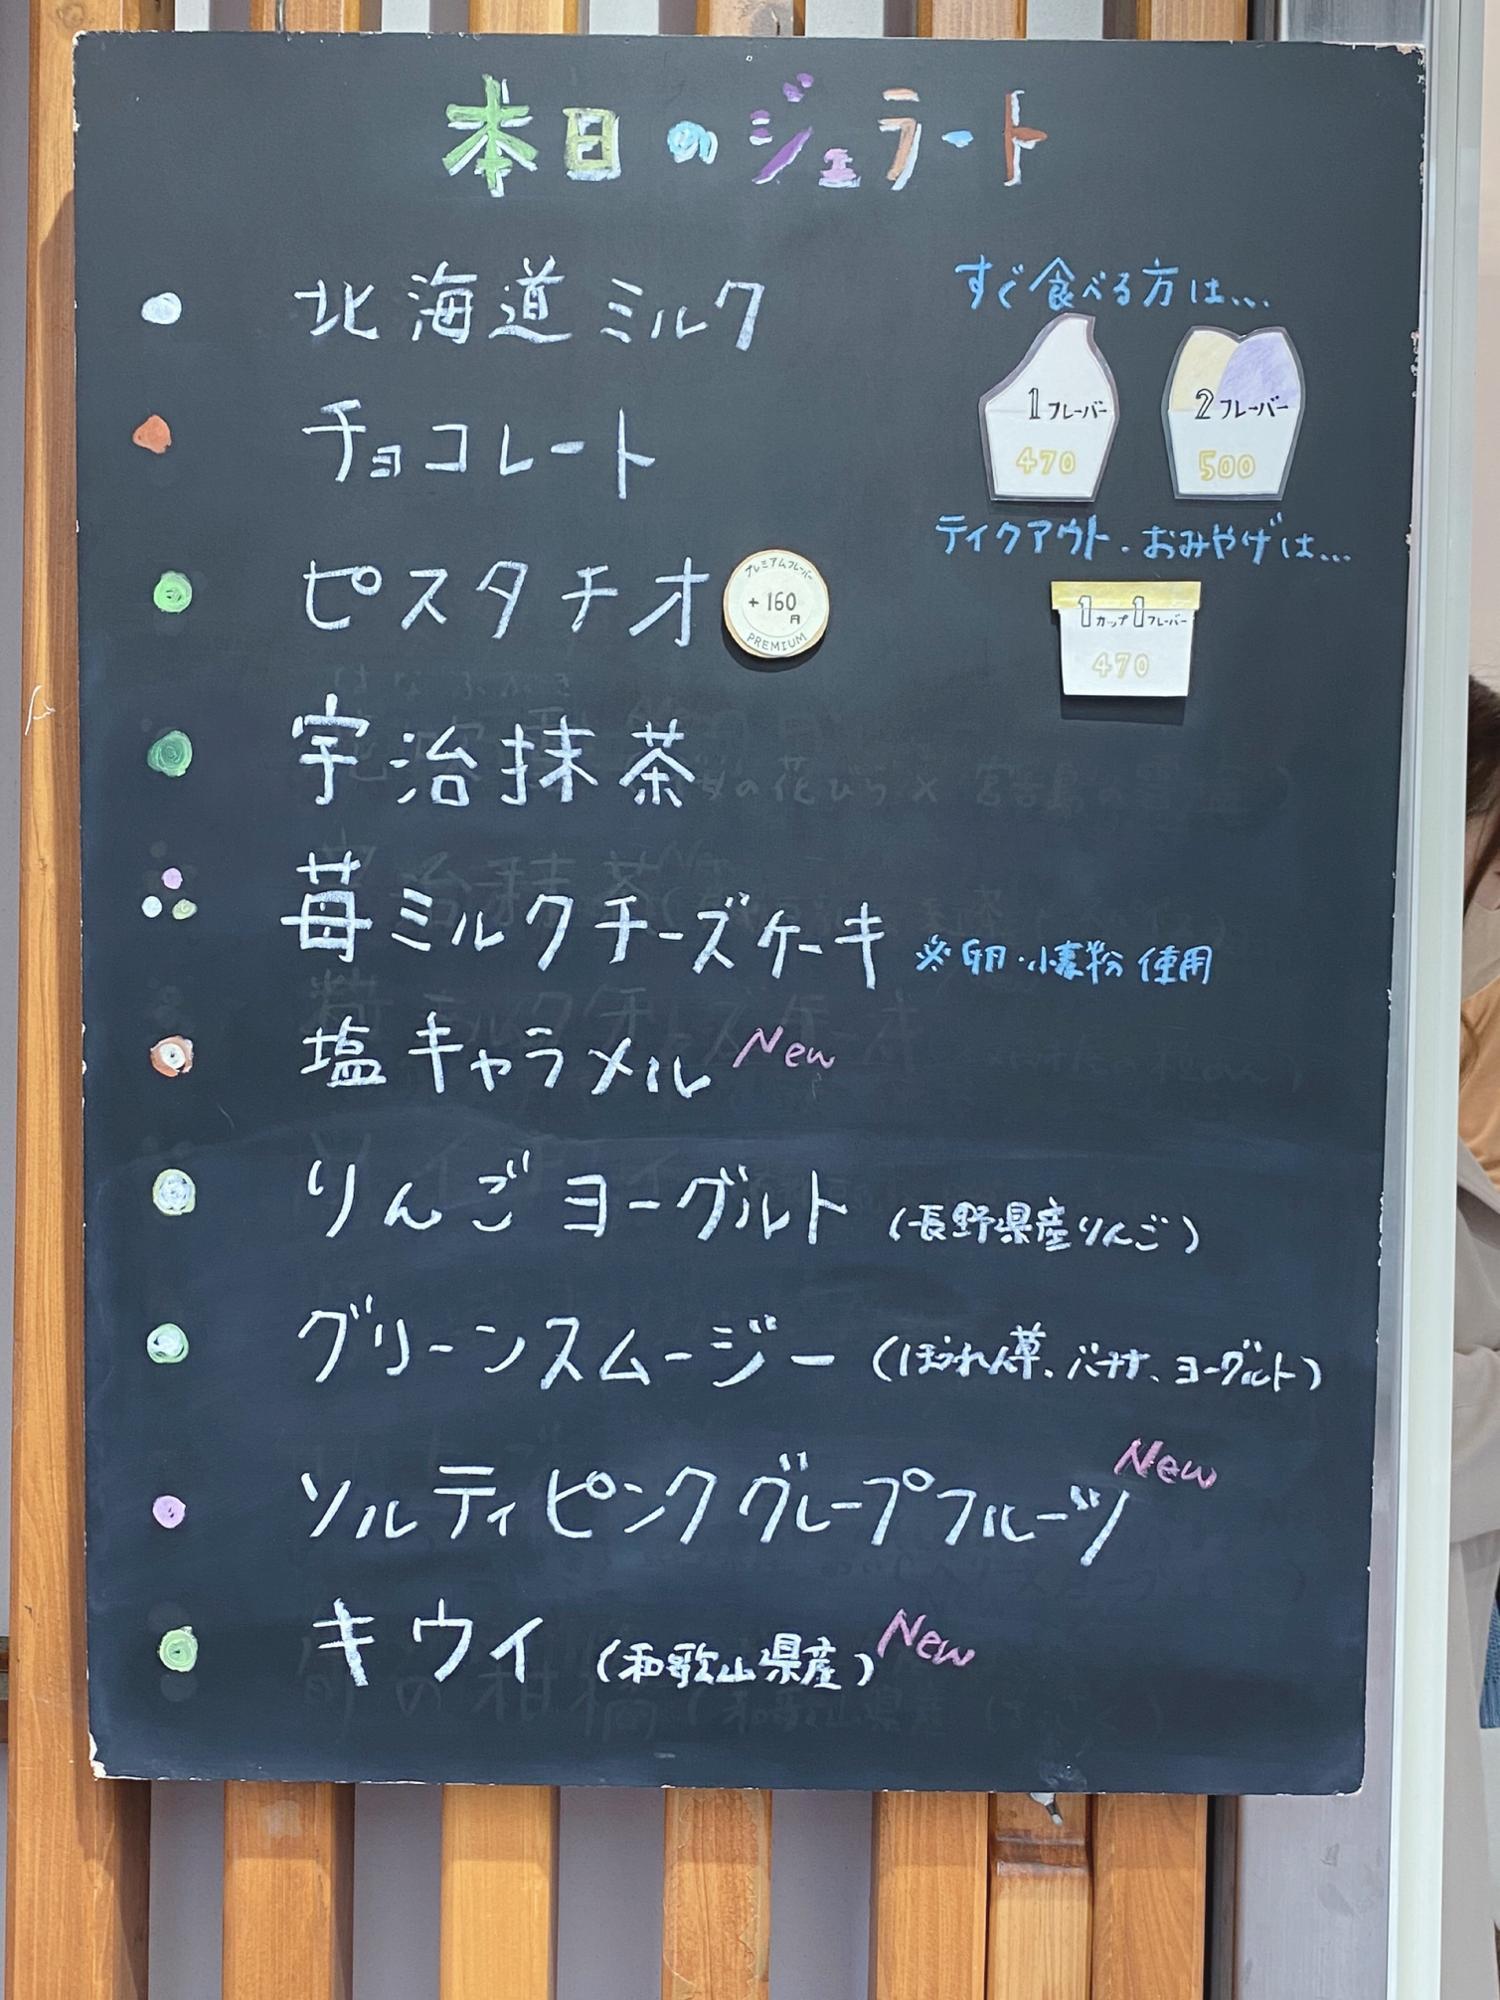 本日のジェラート
北海道ミルク
チョコレート
ピスタチオ
プレミアムフレーバー
+160
円
PREMIUM
宇治抹茶
苺ミルクチーズケーキ ※卵・小麦粉使用
塩キャラメル New
りんごヨーグルト (長野県産りんご)
グリーンスムージー (ほうれん草、バナナ、ヨーグルト)
ソルティピンクグレープフルーツ New
キウイ (和歌山県産) New
すぐ食べる方は...
1フレーバー
470
2フレーバー
500
テイクアウト・おみやげは...
1カップ1フレーバー
470